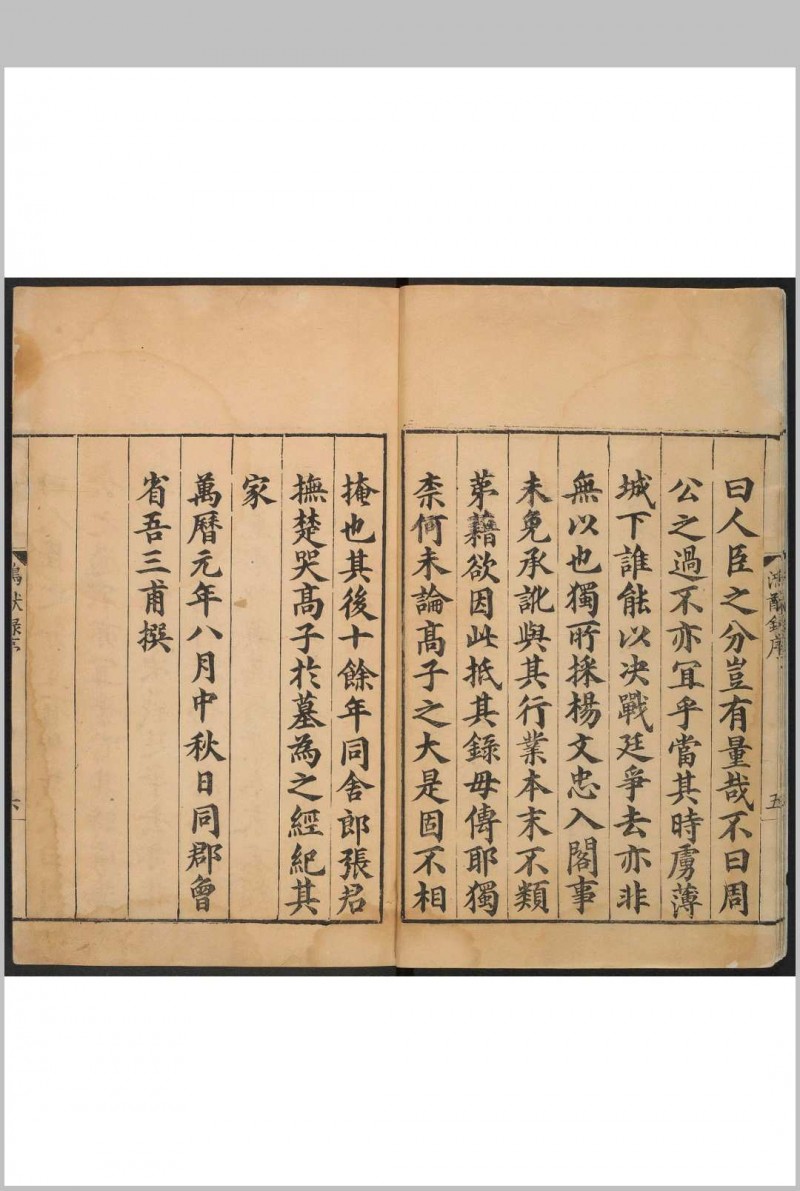 曰人臣之分豈有量哉不曰周
公之過不亦冝乎當其時虜薄
城下誰能以决戰廷爭去亦非
無以也獨所採楊文忠入閣事
未免承訛與其行業本末不類
苐藉欲因此抵其錄毋傳耶獨
柰何未論髙子之大是固不相
掩也其後十餘年同舍郎張君
撫楚哭髙子於墓為之經紀其
家
萬曆元年八月中秋日同郡曾
省吾三甫撰
鴻猷錄序
五
鴻猷錄序
六